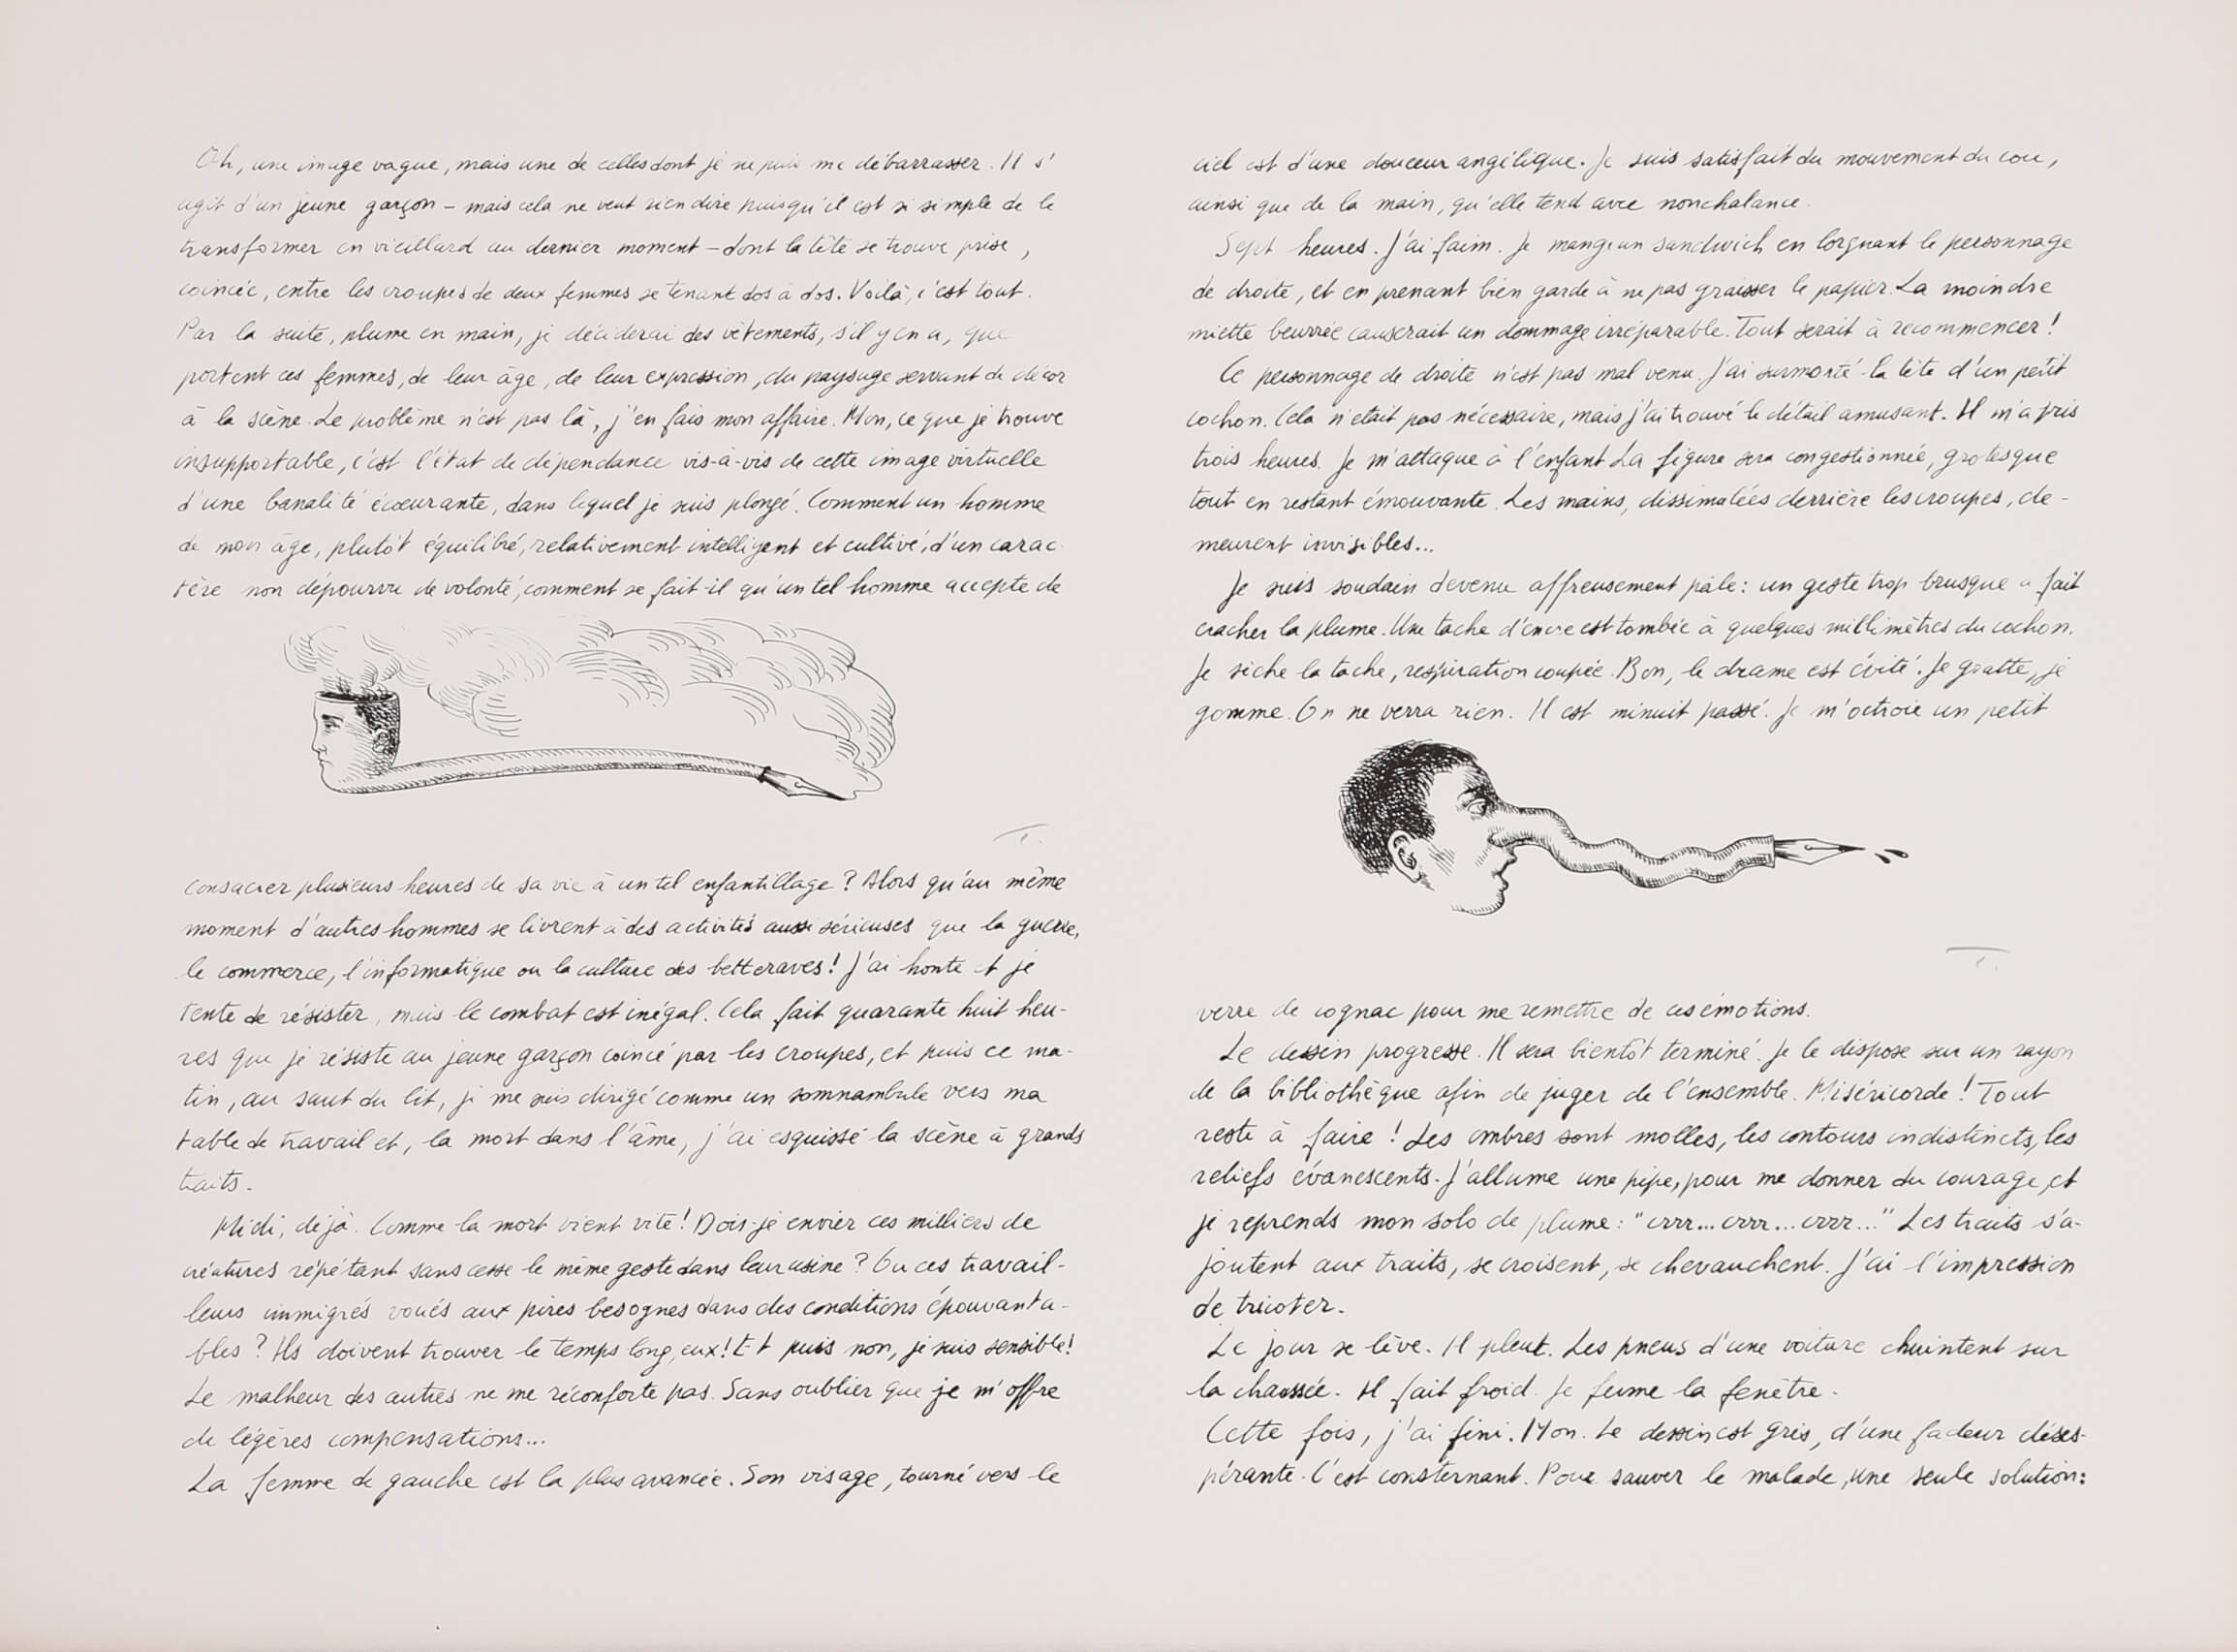 Oh, une image vague, mais une de celles dont je ne puis me débarrasser. Il s'
agit d'un jeune garçon – mais cela ne veut rien dire puisqu'il est si simple de le
transformer en vieillard au dernier moment – dont la tête se trouve prise,
coincée, entre les croupes de deux femmes se tenant dos à dos. Voilà, c'est tout.
Par la suite, plume en main, je déciderai des vêtements, s'il y en a, que
portent ces femmes, de leur âge, de leur expression, du paysage servant de décor
à la scène. Le problème n'est pas là, j'en fais mon affaire. Non, ce que je trouve
insupportable, c'est l'état de dépendance vis-à-vis de cette image virtuelle
d'une banalité écœurante, dans lequel je suis plongé. Comment un homme
de mon âge, plutôt équilibré, relativement intelligent et cultivé, d'un carac
tère non dépourvu de volonté, comment se fait-il qu'un tel homme accepte de
T.
consacrer plusieurs heures de sa vie à un tel enfantillage ? Alors qu'au même
moment d'autres hommes se livrent à des activités aussi sérieuses que la guerre,
le commerce, l'informatique ou la culture des betteraves ! J'ai honte et je
tente de résister, mais le combat est inégal. Cela fait quarante huit heu-
res que je résiste au jeune garçon coincé par les croupes, et puis ce ma-
tin, au saut du lit, je me suis dirigé comme un somnambule vers ma
table de travail et, la mort dans l'âme, j'ai esquissé la scène à grands
traits.
Midi, déjà. Comme la mort vient vite ! Dois-je envier ces milliers de
créatures répétant sans cesse le même geste dans leur usine ? Ou ces travail-
leurs immigrés voués aux pires besognes dans des conditions épouvanta-
bles ? Ils doivent trouver le temps long, eux ! Et puis non, je suis sensible !
Le malheur des autres ne me réconforte pas. Sans oublier que je m'offre
de légères compensations...
La femme de gauche est la plus avancée. Son visage, tourné vers le
ciel est d'une douceur angélique. Je suis satisfait du mouvement du cou,
ainsi que de la main, qu'elle tend avec nonchalance.
Sept heures. J'ai faim. Je mange un sandwich en lorgnant le personnage
de droite, et en prenant bien garde à ne pas graisser le papier. La moindre
miette beurrée causerait un dommage irréparable. Tout serait à recommencer !
Ce personnage de droite n'est pas mal venu. J'ai surmonté la tête d'un petit
cochon. Cela n'était pas nécessaire, mais j'ai trouvé le détail amusant. Il m'a pris
trois heures. Je m'attaque à l'enfant. La figure sera congestionnée, grotesque
tout en restant émouvante. Les mains, dissimulées derrière les croupes, de-
meurent invisibles...
Je suis soudain devenu affreusement pâle : un geste trop brusque a fait
cracher la plume. Une tache d'encre est tombée à quelques millimètres du cochon.
Je sèche la tache, respiration coupée. Bon, le drame est évité. Je gratte, je
gomme. On ne verra rien. Il est minuit passé. Je m'octroie un petit
T.
verre de cognac pour me remettre de ces émotions.
Le dessin progresse. Il sera bientôt terminé. Je le dispose sur un rayon
de la bibliothèque afin de juger de l'ensemble. Miséricorde ! Tout
reste à faire ! Les ombres sont molles, les contours indistincts, les
reliefs évanescents. J'allume une pipe, pour me donner du courage, et
je reprends mon solo de plume : "crrr... crrr... crrr..." Les traits s'a-
joutent aux traits, se croisent, se chevauchent. J'ai l'impression
de tricoter.
Le jour se lève. Il pleut. Les pneus d'une voiture chuintent sur
la chaussée. Il fait froid. Je ferme la fenêtre.
Cette fois, j'ai fini. Non. Le dessin est gris, d'une fadeur déses-
pérante. C'est consternant. Pour sauver le malade, une seule solution :